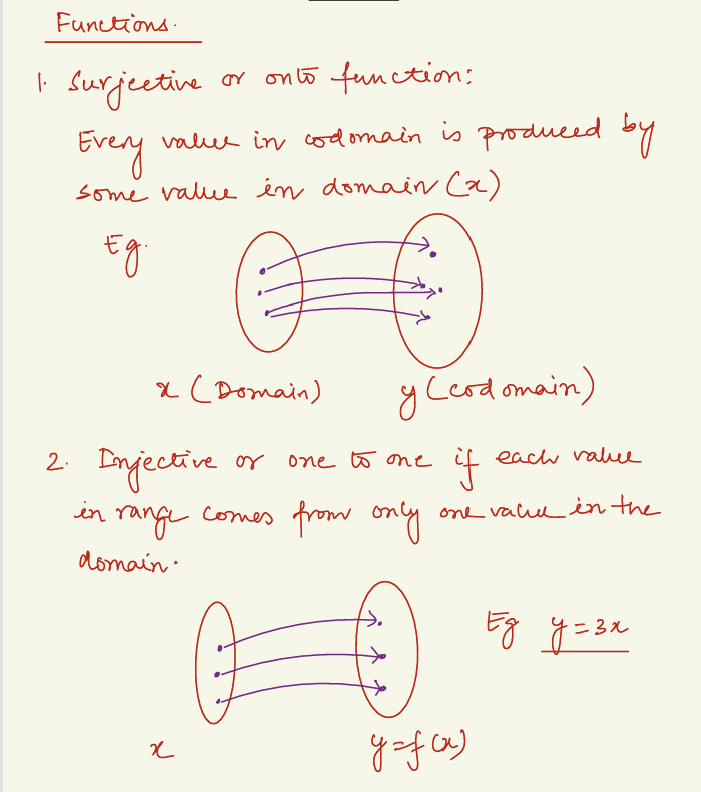 Functions.
1. Surjective or onto function:
Every value in codomain is produced by
some value in domain (x)
Eg.
x (Domain) y (codomain)
2. Injective or one to one if each value
in range comes from only one value in the
domain.
Eg y = 3x
x y = f(x)